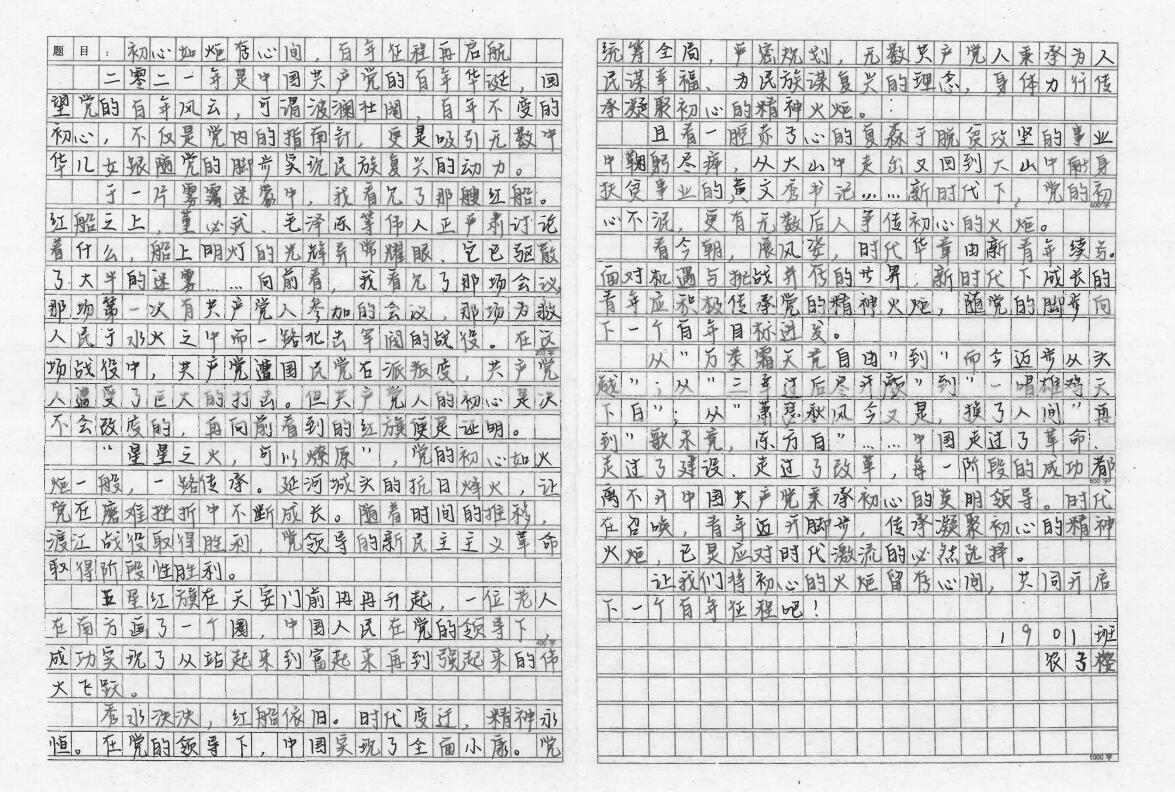 题目：初心如炬存心间，百年征程再启航
二零二一年是中国共产党的百年华诞，回
望党的百年风云，可谓波澜壮阔，百年不变的
初心，不仅是党内的指南针，更是吸引无数中
华儿女跟随党的脚步实现民族复兴的动力。
于一片雾霭迷蒙中，我看见了那艘红船。
红船之上，董必武、毛泽东等伟人正严肃讨论
着什么，船上明灯的光辉异常耀眼，它已驱散
了大半的迷雾……向前看，我看见了那场会议，
那场第一次有共产党人参加的会议，那场为救
人民于水火之中而一路北击军阀的战役。在这
200字
场战役中，共产党遭国民党右派叛变，共产党
人遭受了巨大的打击。但共产党人的初心是决
不会改变的，再向前看到的红旗便是证明。
“星星之火，可以燎原”，党的初心如火
炬一般，一路传承。延河城头的抗日烽火，让
党在磨难挫折中不断成长。随着时间的推移，
渡江战役取得胜利，党领导的新民主主义革命
取得阶段性胜利。
五星红旗在天安门前冉冉升起，一位老人
在南方画了一个圈，中国人民在党的领导下，
400字
成功实现了从站起来到富起来再到强起来的伟
大飞跃。
秀水泱泱，红船依旧。时代变迁，精神永
恒。在党的领导下，中国实现了全面小康。党
统筹全局，严密规划，无数共产党人秉承为人
民谋幸福、为民族谋复兴的理念，身体力行传
承凝聚初心的精神火炬。
且看一腔赤子心的复森于脱贫攻坚的事业
中鞠躬尽瘁，从大山中走出又回到大山中献身
扶贫事业的黄文秀书记……新时代下，党的初
600字
心不泯，更有无数后人争传初心的火炬。
看今朝，展风姿，时代华章由新青年续写。
面对机遇与挑战并存的世界，新时代下成长的
青年应积极传承党的精神火炬，随党的脚步向
下一个百年目标进发。
从“万类霜天竞自由”到“而今迈步从头
越”；从“三军过后尽开颜”到“一唱雄鸡天
下白”；从“萧瑟秋风今又是，换了人间”再
到“歌未竟，东方白”……中国走过了革命、
走过了建设、走过了改革，每一阶段的成功都
800字
离不开中国共产党秉承初心的英明领导。时代
在召唤，青年迈开脚步，传承凝聚初心的精神
火炬，已是应对时代激流的必然选择。
让我们将初心的火炬留存心间，共同开启
下一个百年征程吧！
1901班
农子橙
1000字